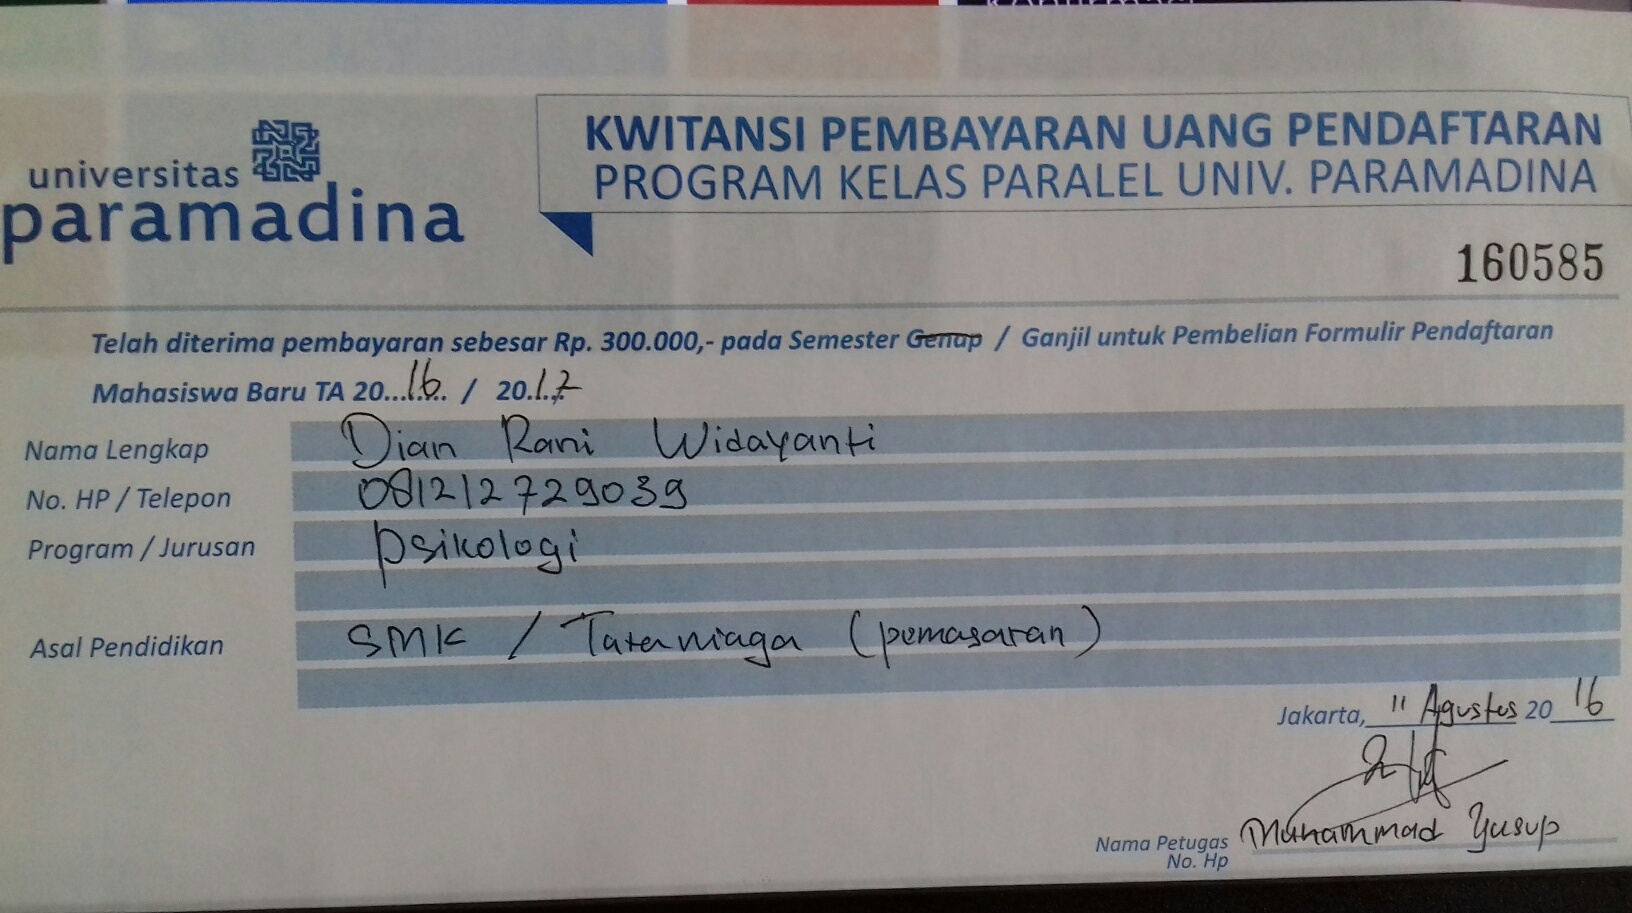 universitas
paramadina
KWITANSI PEMBAYARAN UANG PENDAFTARAN
PROGRAM KELAS PARALEL UNIV. PARAMADINA
160585
Telah diterima pembayaran sebesar Rp. 300.000,- pada Semester Genap / Ganjil untuk Pembelian Formulir Pendaftaran
Mahasiswa Baru TA 20...16.. / 20.17
Nama Lengkap Dian Rani Widayanti
No. HP / Telepon 081212729039
Program / Jurusan psikologi
Asal Pendidikan SMK / Tataniaga (pemasaran)
Jakarta, 11 Agustus 20 16
Nama Petugas Muhammad Yusup
No. Hp